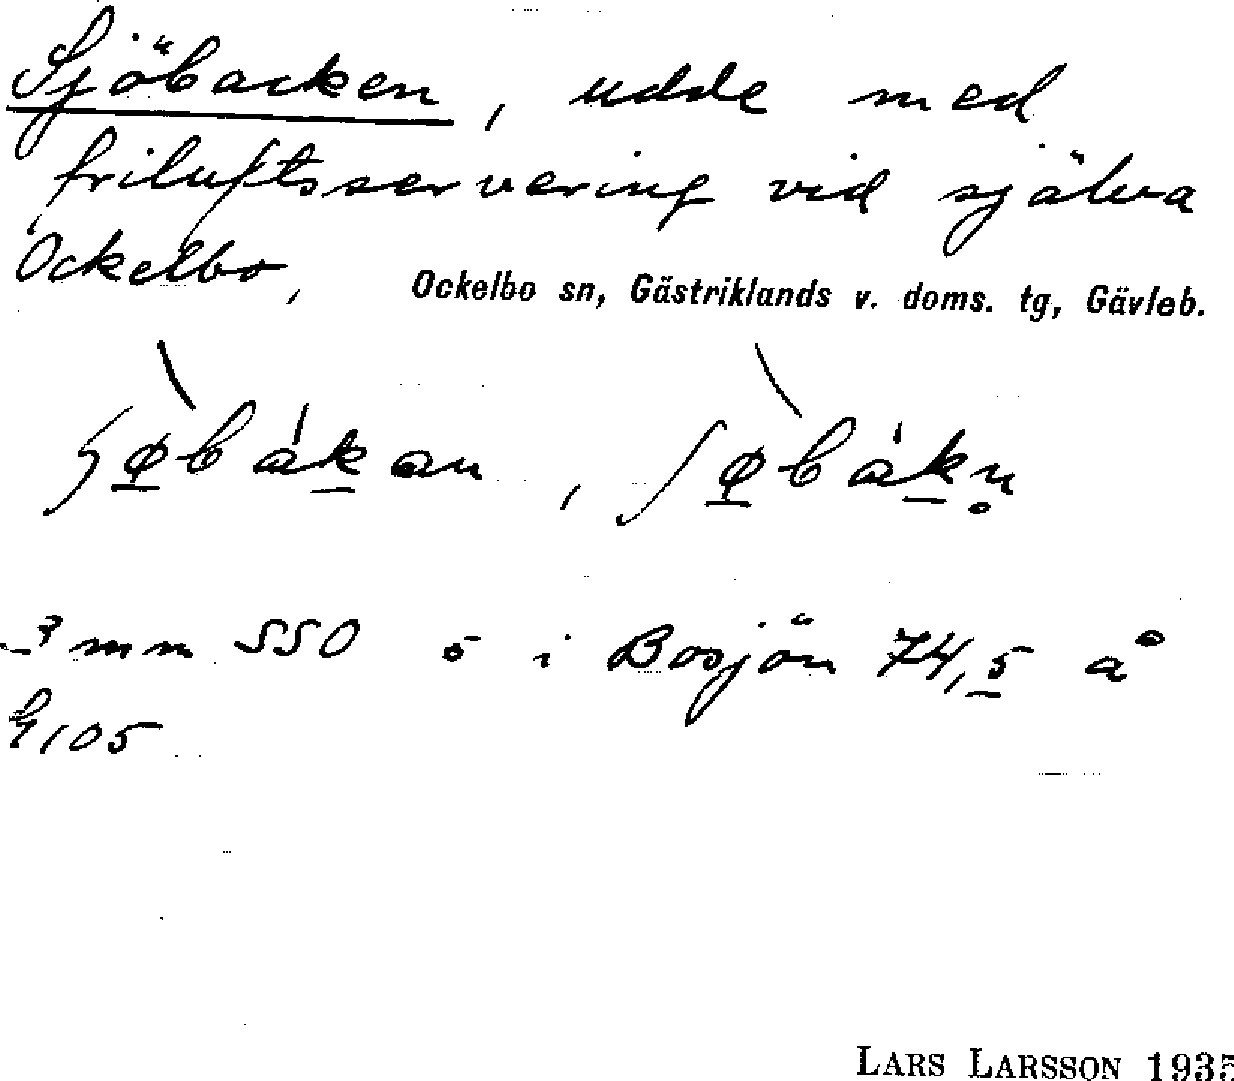 Sjöbacken, udde med
friluftsservering vid själva
Ockelbo, Ockelbo sn, Gästriklands v. doms. tg, Gävleb.
ʃøbákan, ʃøbákn̥
3 mm SSO ö i Bosjön 74,5 å
G 105
LARS LARSSON 1935